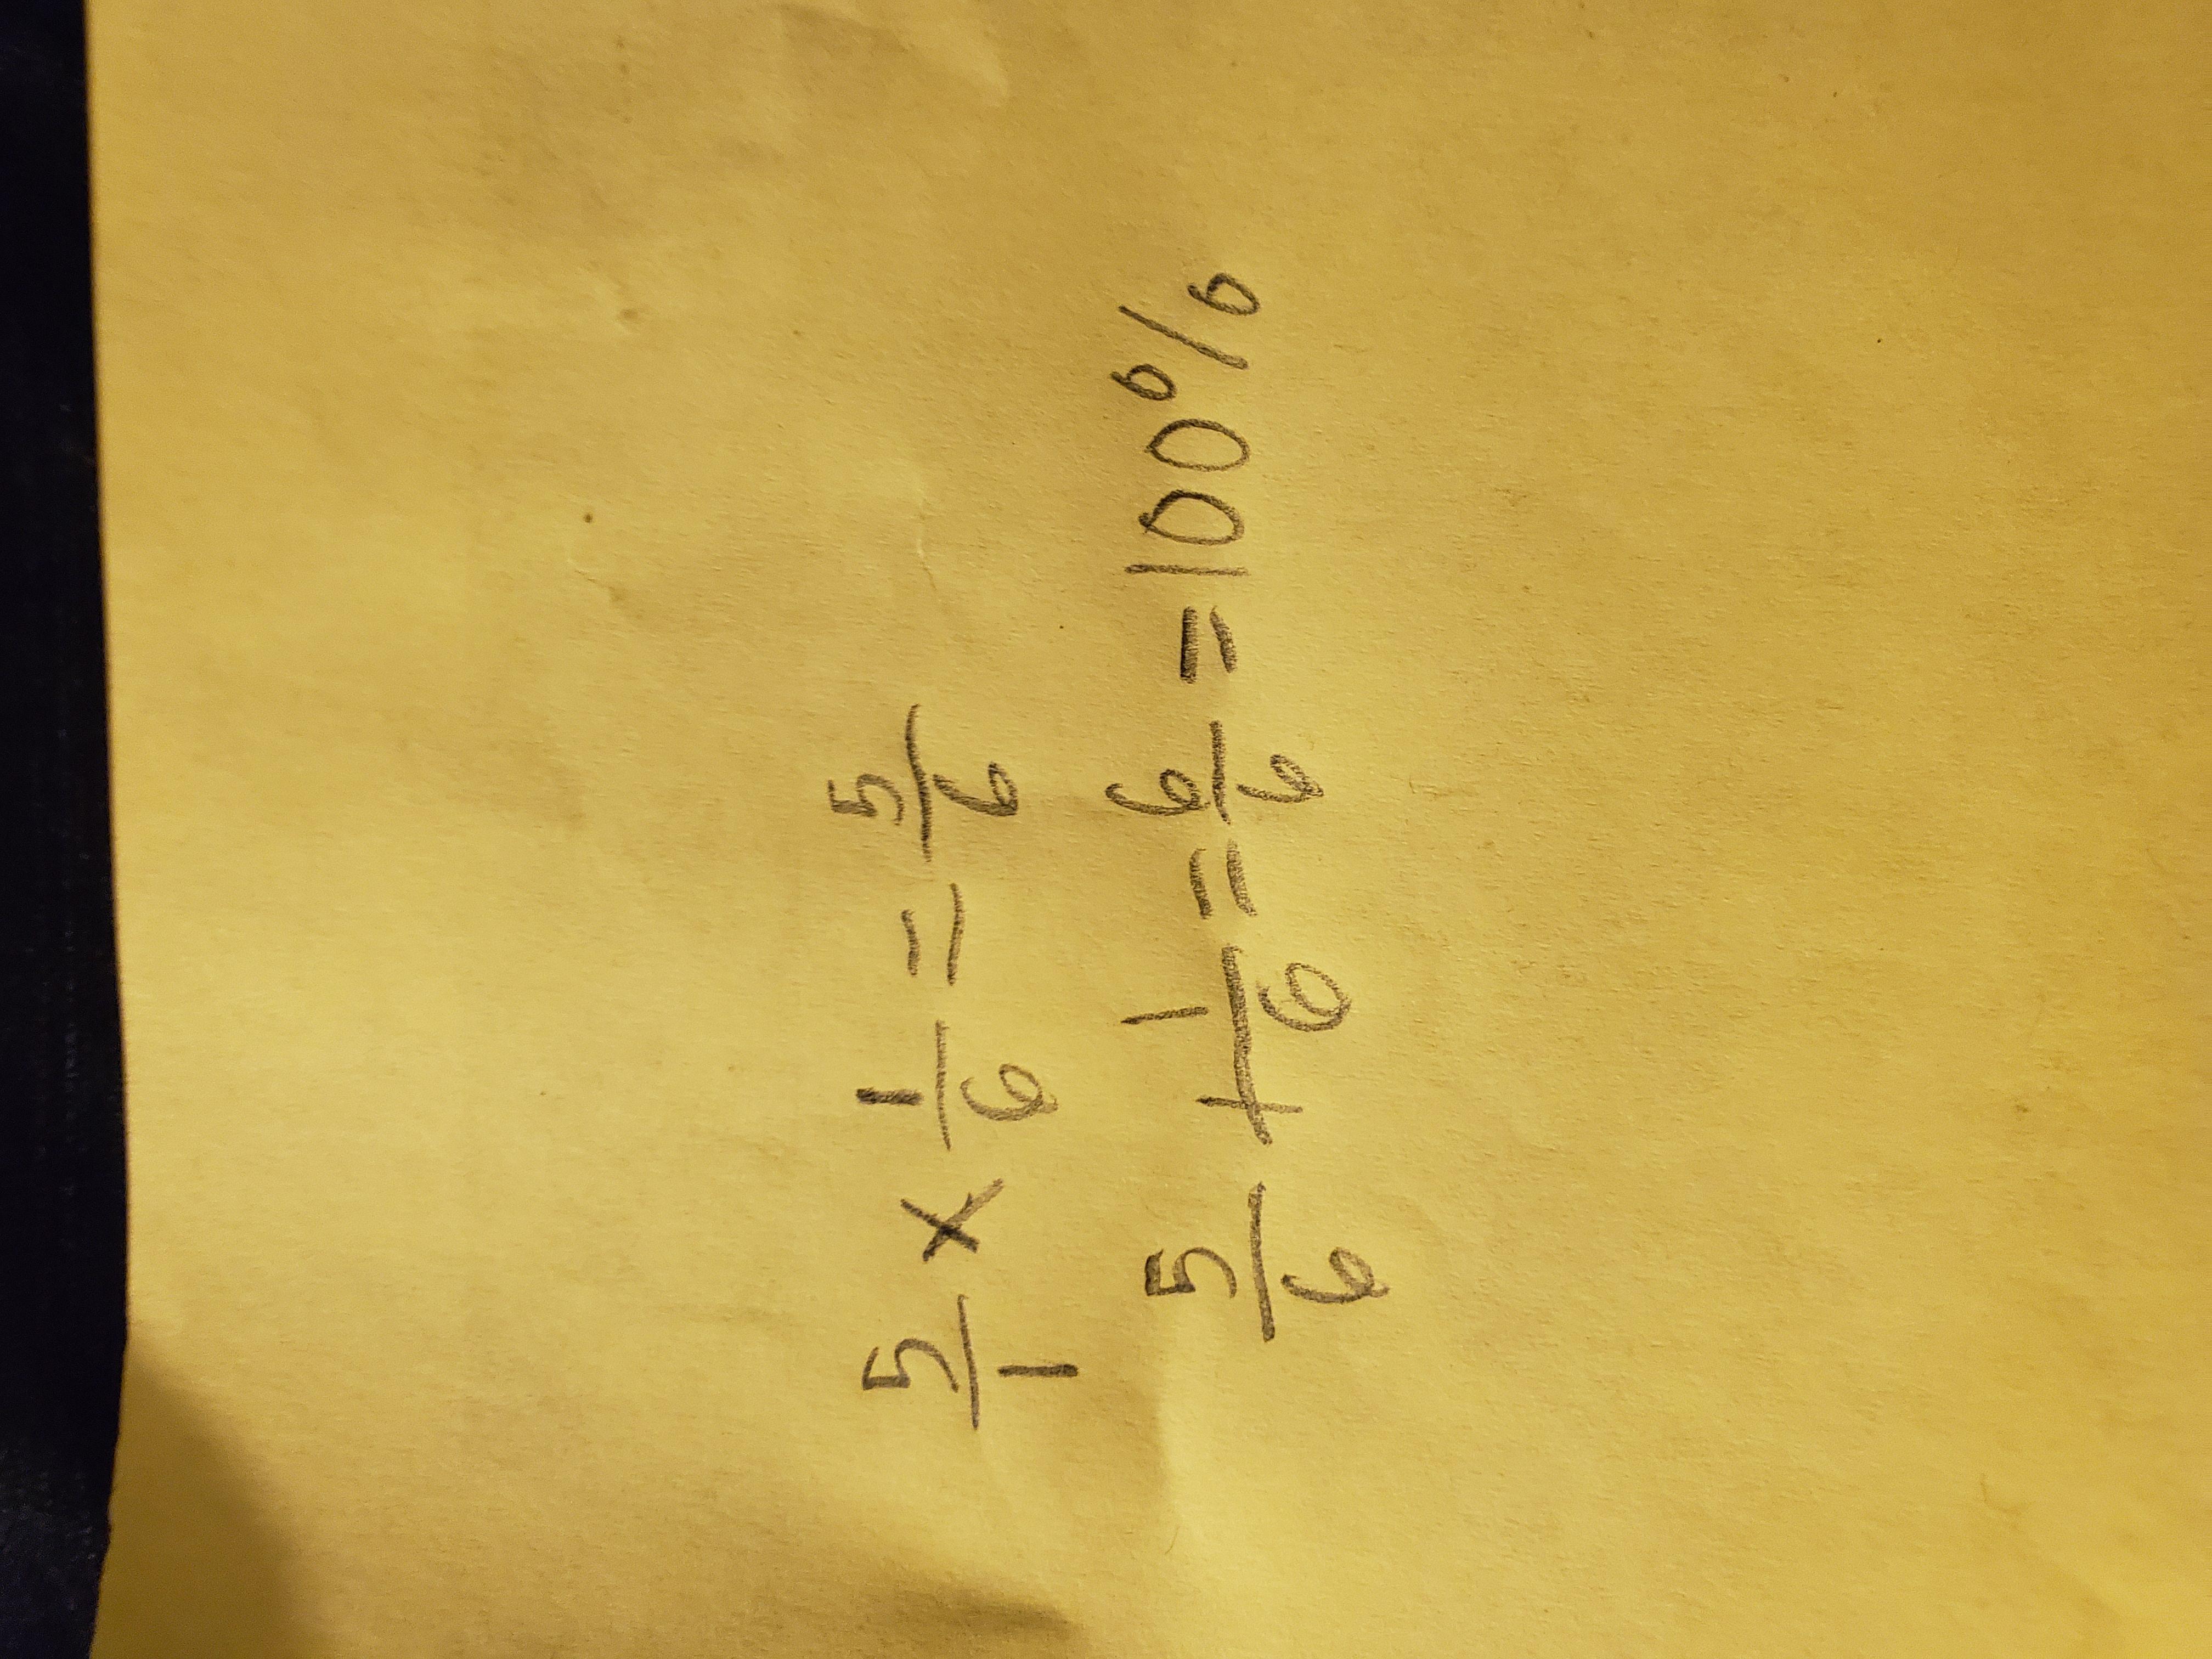 5/1 x 1/6 = 5/6
5/6 + 1/6 = 6/6 = 100%